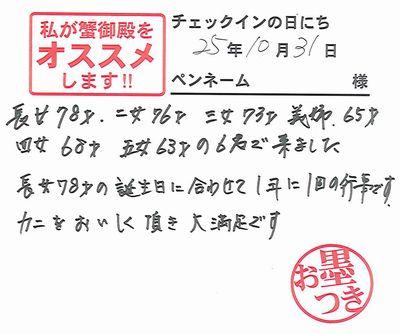 私が蟹御殿を
オススメ
します!!
チェックインの日にち
25年10月31日
ペンネーム 様
長女78才. 二女76才 三女73才 義姉.65才
四女68才 五女63才の6名で来ました
長女78才の誕生日に合わせて1年に1回の行事です.
カニをおいしく頂き大満足です
お墨つき